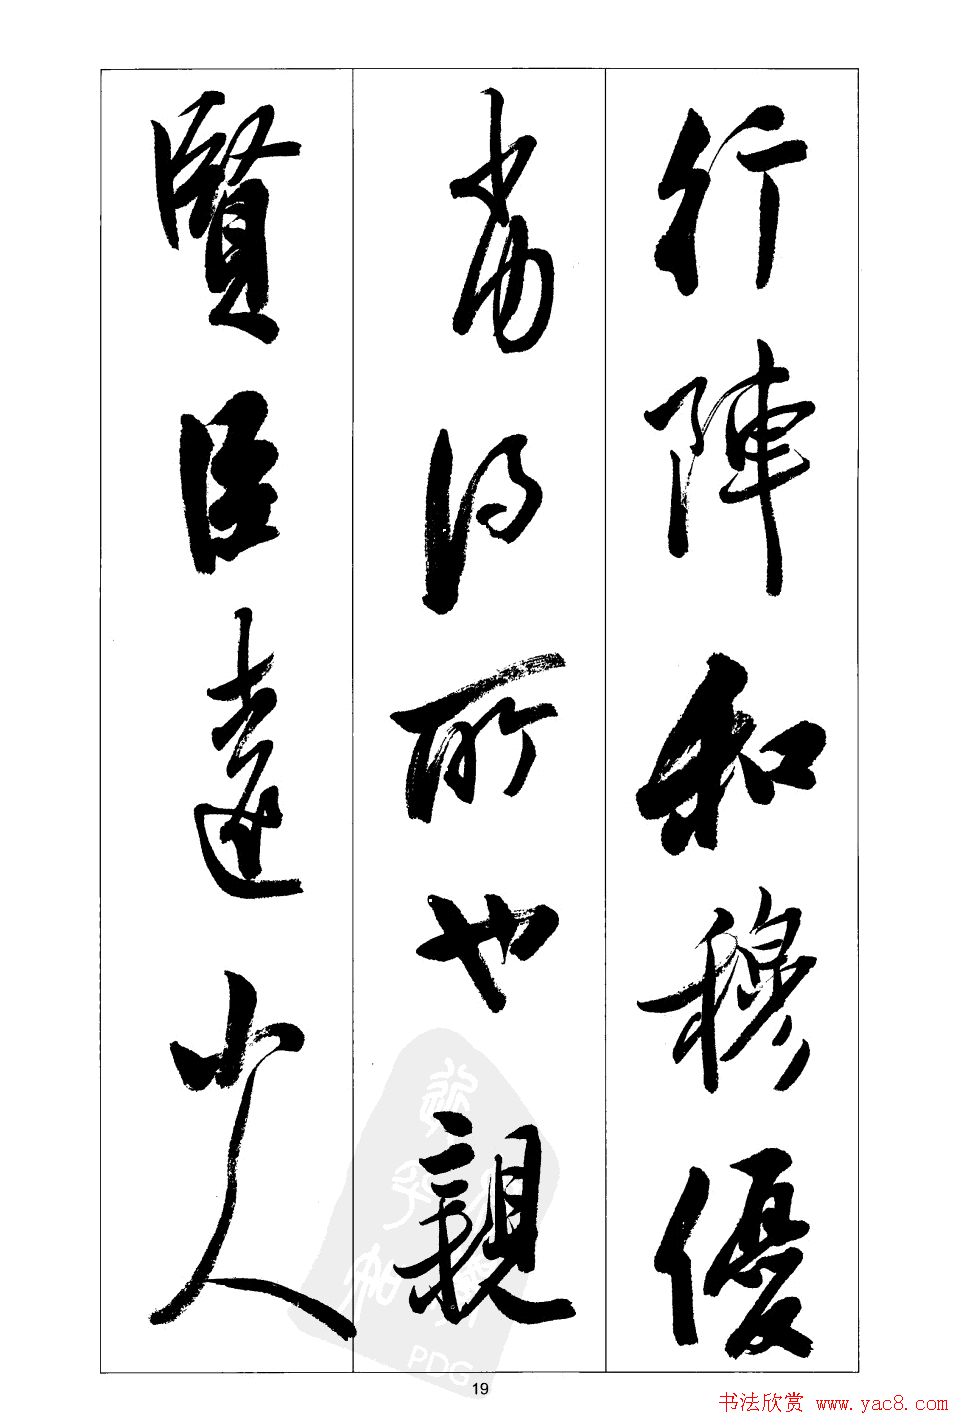 行陣和穆優
劣得所也親
賢臣遠小人
19
书法欣赏 www.yac8.com
PDG